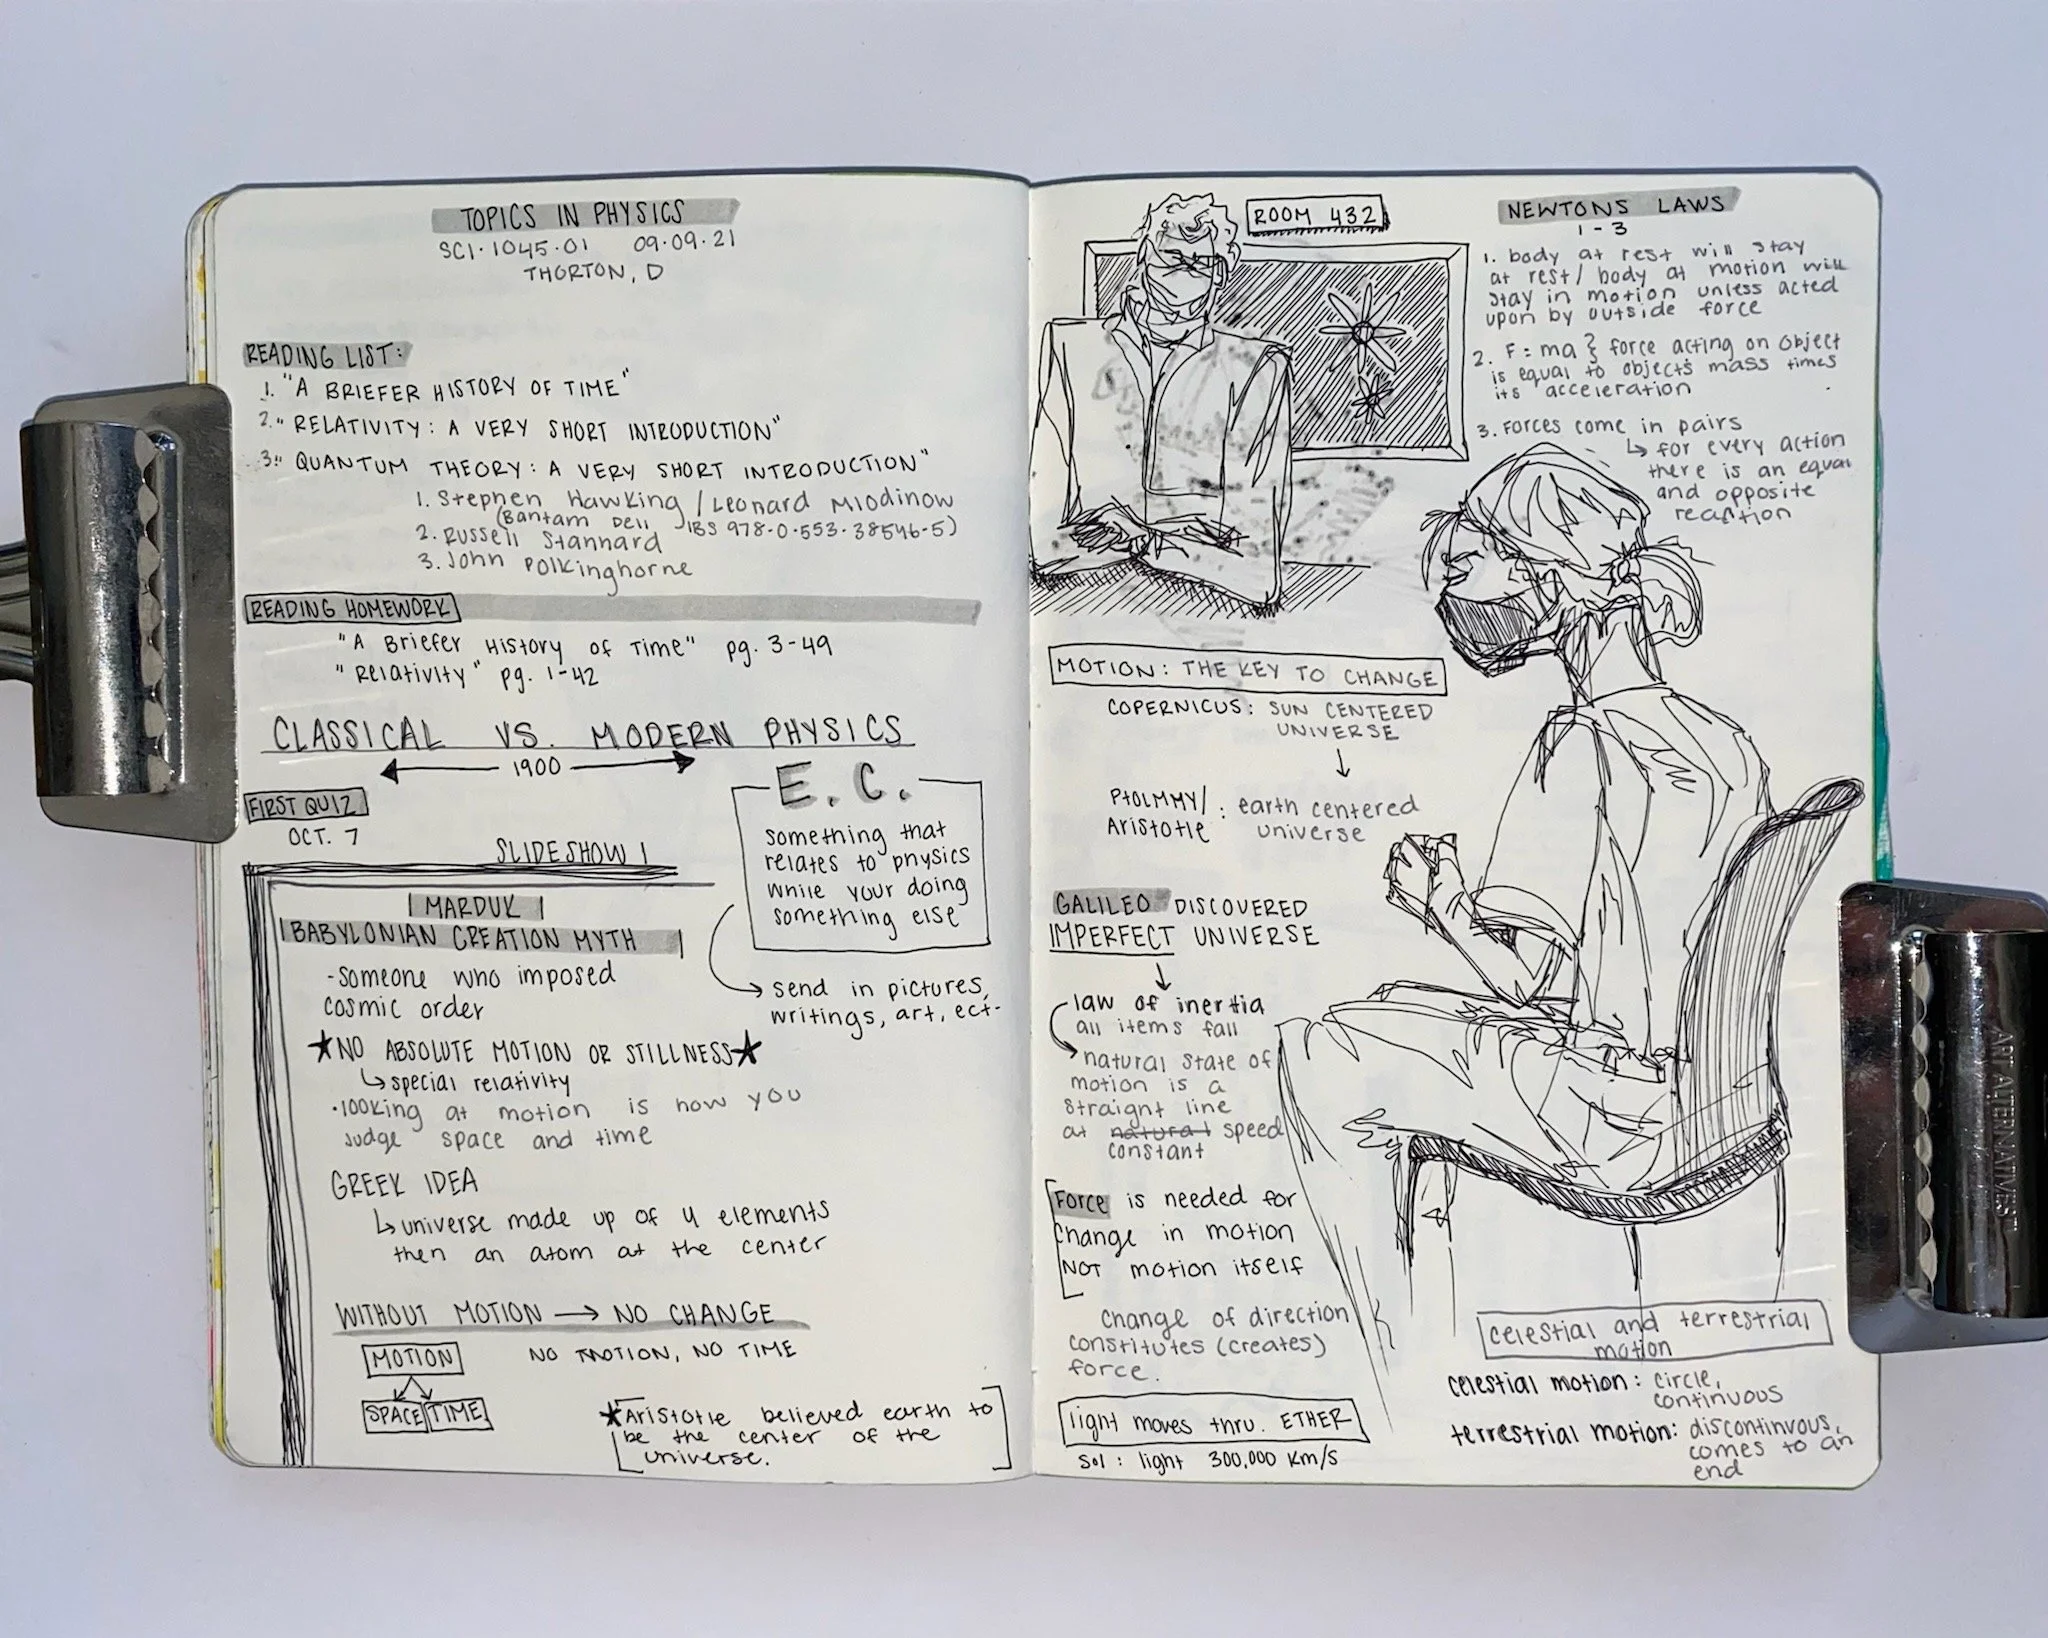 TOPICS IN PHYSICS
SCI·1045·01 09·09·21
THORTON, D
READING LIST:
1. "A BRIEFER HISTORY OF TIME"
2. "RELATIVITY: A VERY SHORT INTRODUCTION"
3. "QUANTUM THEORY: A VERY SHORT INTRODUCTION"
1. Stephen Hawking / Leonard Mlodinow
(Bantam Dell IBS 978-0-553-38546-5)
2. Russell Stannard
3. John Polkinghorne
READING HOMEWORK
"A Briefer History of Time" pg. 3-49
"Relativity" pg. 1-42
CLASSICAL VS. MODERN PHYSICS
1900
FIRST QUIZ
OCT. 7
E.C.
something that
relates to physics
while your doing
something else
send in pictures,
writings, art, ect-
SLIDESHOW 1
MARDUK
BABYLONIAN CREATION MYTH
-someone who imposed
cosmic order
★NO ABSOLUTE MOTION OR STILLNESS★
↳special relativity
·looking at motion is how you
judge space and time
GREEK IDEA
↳universe made up of 4 elements
then an atom at the center
WITHOUT MOTION → NO CHANGE
MOTION NO MOTION, NO TIME
SPACE TIME
★Aristotle believed earth to
be the center of the
universe.
ROOM 432
NEWTONS LAWS
1-3
1. body at rest will stay
at rest/ body at motion will
stay in motion unless acted
upon by outside force
2. F = ma } force acting on object
is equal to objects mass times
its acceleration
3. Forces come in pairs
↳ for every action
there is an equal
and opposite
reaction
MOTION: THE KEY TO CHANGE
COPERNICUS: SUN CENTERED
UNIVERSE
↓
Ptolmmy/
Aristotle : earth centered
universe
GALILEO DISCOVERED
IMPERFECT UNIVERSE
↓
law of inertia
all items fall
natural state of
motion is a
straight line
at natural speed
constant
Force is needed for
change in motion
NOT motion itself
change of direction
constitutes (creates)
force.
light moves thru. ETHER
sol: light 300,000 km/s
celestial and terrestrial
motion
celestial motion: circle,
continuous
terrestrial motion: discontinvous,
comes to an
end
ART ALTERNATIVES